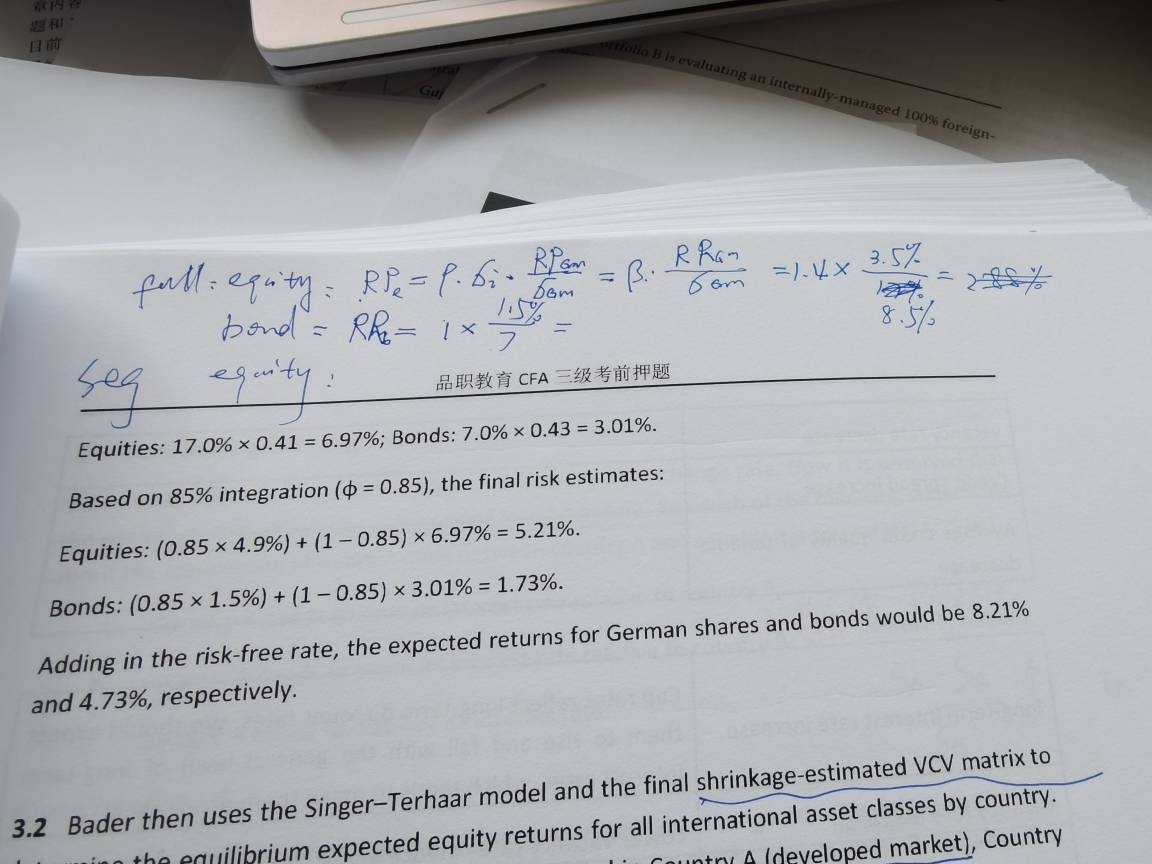 章内容
题和
目前
Portfolio B is evaluating an internally-managed 100% foreign-
full: equity: RPe = ρ · σi · RPGM / σGM = β · RPGM / σGM = 1.4 × 3.5% / 8.5% =
bond = RPb = 1 × 1.5% / 7 =
Seg equity:
品职教育 CFA 三级考前押题
Equities: 17.0% × 0.41 = 6.97%; Bonds: 7.0% × 0.43 = 3.01%.
Based on 85% integration (ϕ = 0.85), the final risk estimates:
Equities: (0.85 × 4.9%) + (1 − 0.85) × 6.97% = 5.21%.
Bonds: (0.85 × 1.5%) + (1 − 0.85) × 3.01% = 1.73%.
Adding in the risk-free rate, the expected returns for German shares and bonds would be 8.21%
and 4.73%, respectively.
3.2 Bader then uses the Singer–Terhaar model and the final shrinkage-estimated VCV matrix to
the equilibrium expected equity returns for all international asset classes by country.
Country A (developed market), Country